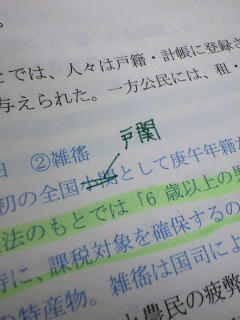 。
とでは、人々は戸籍・計帳に登録さ
与えられた。一方公民には、租・
②雑徭
戸関
初の全国として庚午年籍
法のもとでは「6歳以上の男
に、課税対象を確保するの
の特産物。雑徭は国司によ
農民の疲弊